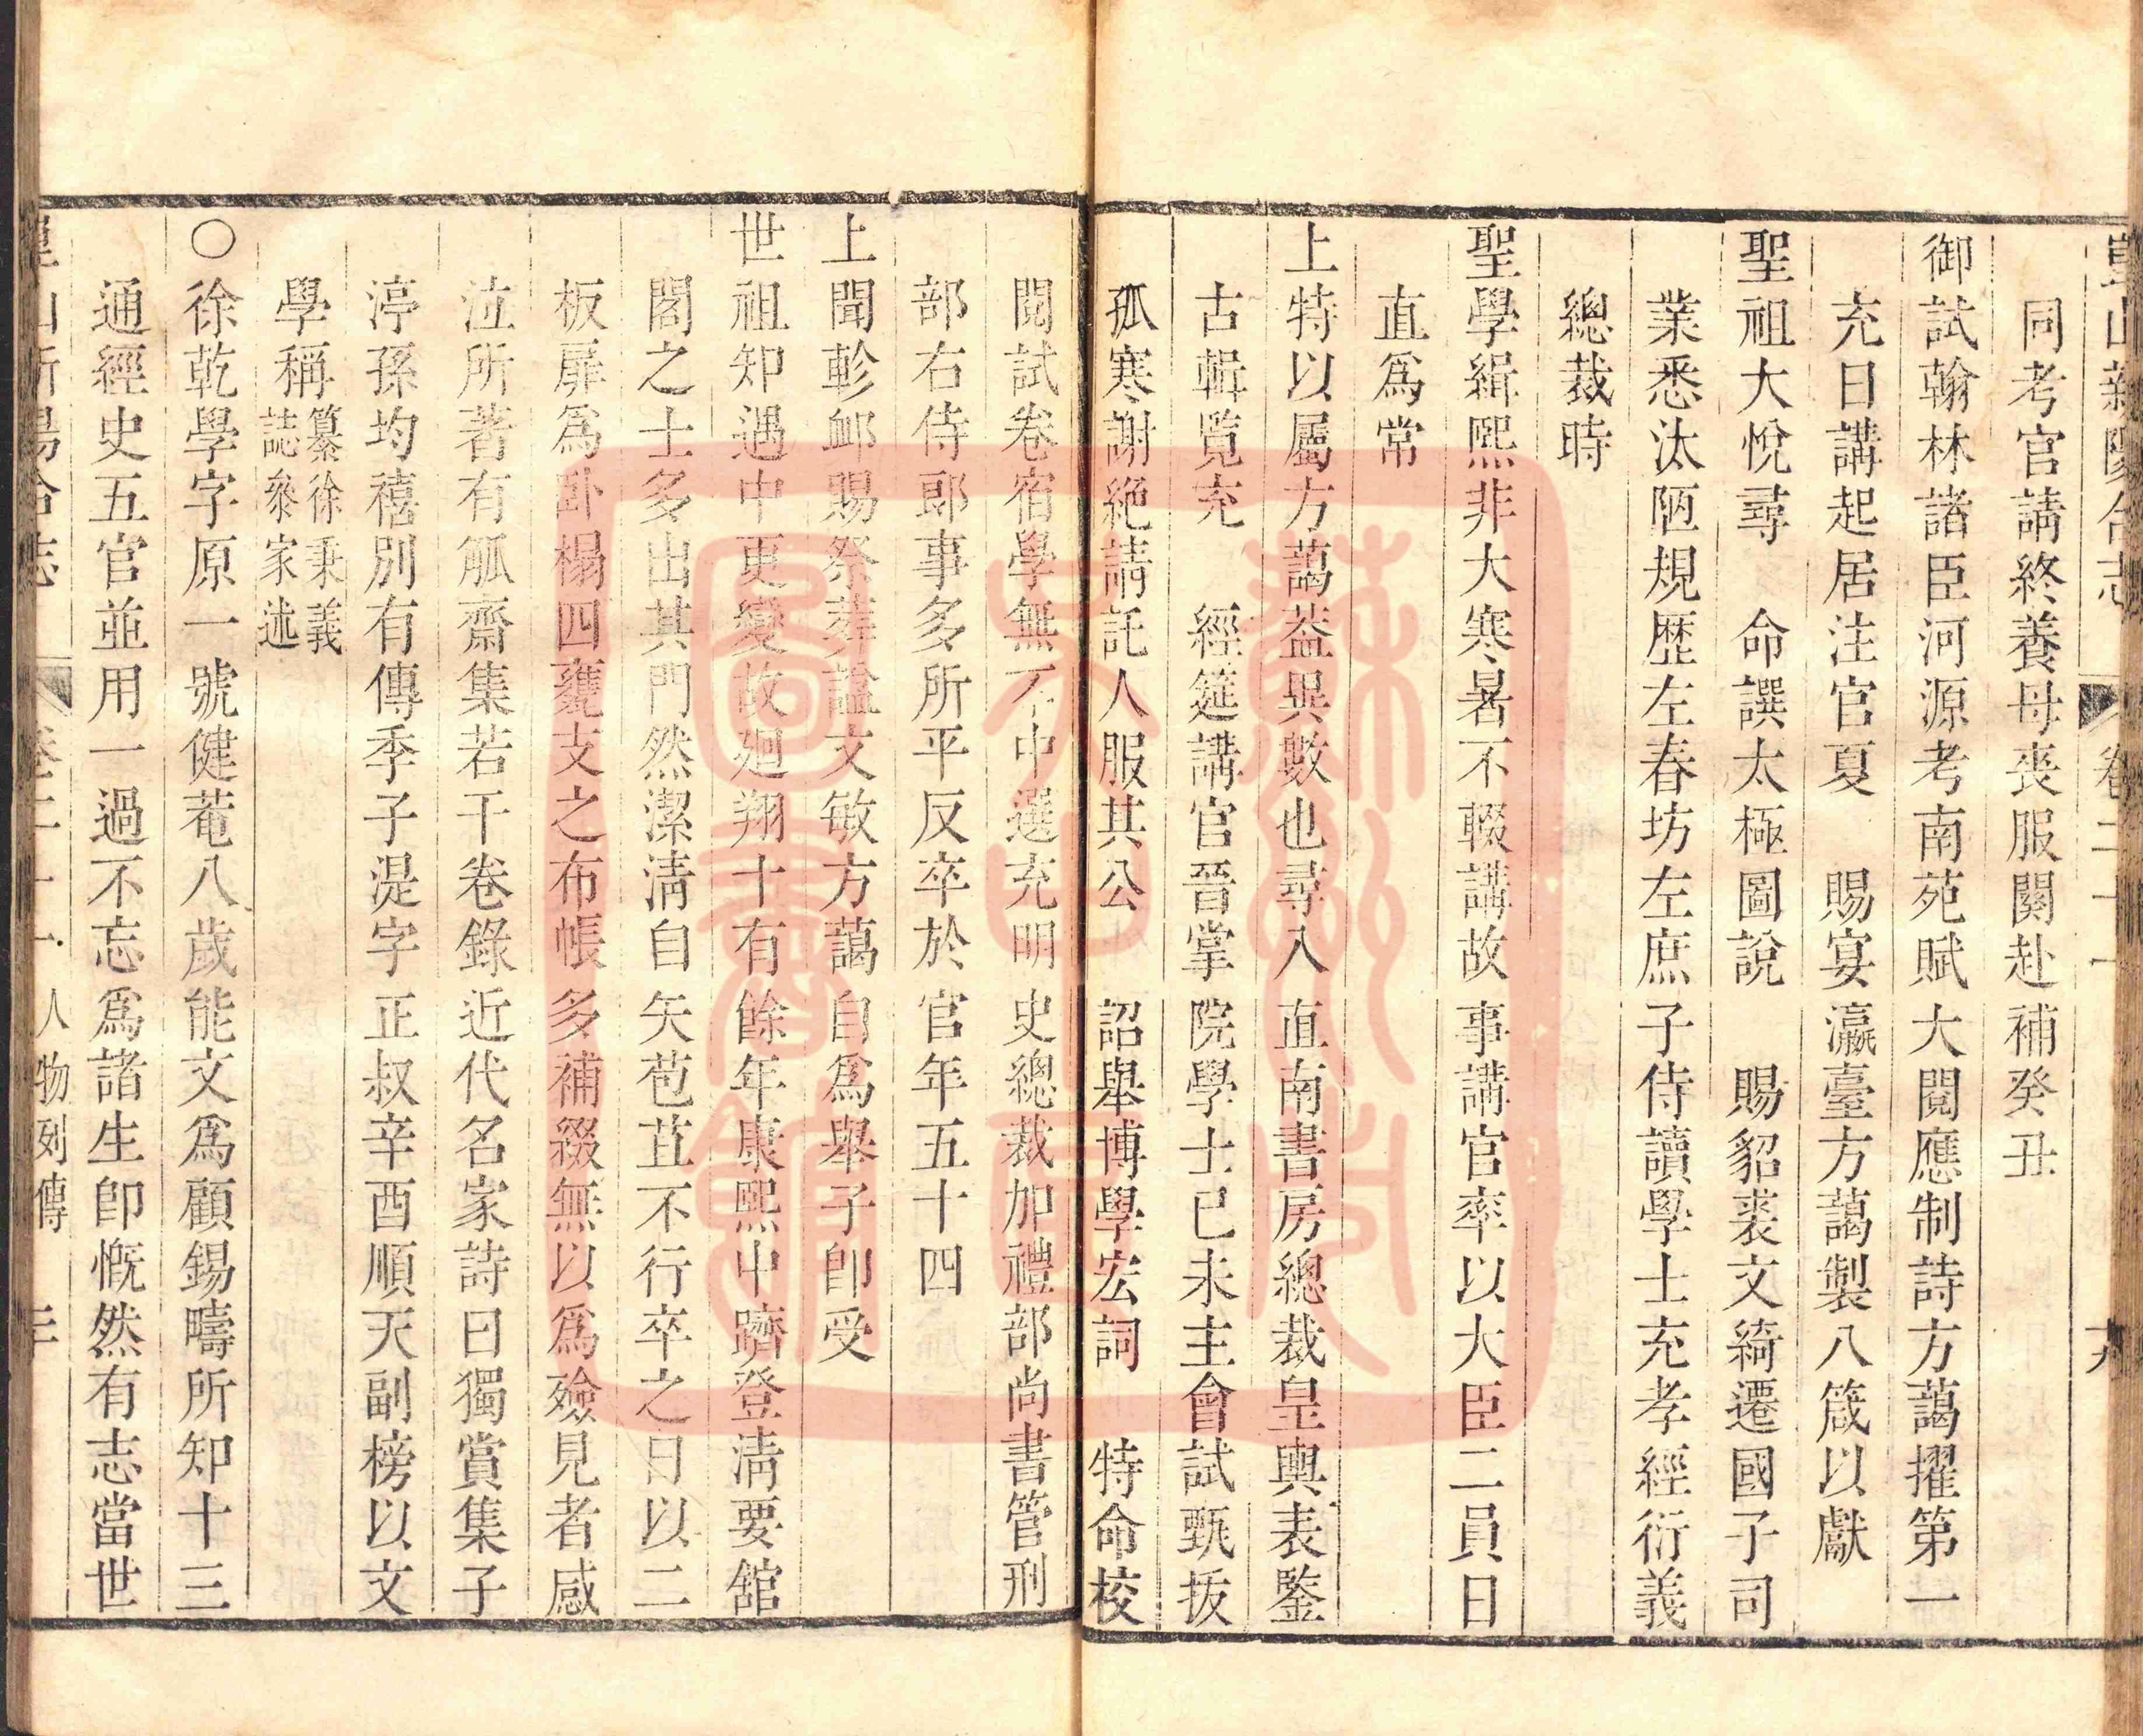 崑山新陽合志 卷二十一 十九
同考官請終養母喪服闋赴補癸丑
御試翰林諸臣河源考南苑賦大閱應制詩方藹擢第一
充日講起居注官夏 賜宴瀛臺方藹製八箴以獻
聖祖大悅尋 命譔太極圖說 賜貂裘文綺遷國子司
業悉汰陋規歷左春坊左庶子侍讀學士充孝經衍義
總裁時
聖學緝熙非大寒暑不輟講故事講官率以大臣二員日
直爲常
上特以屬方藹葢異數也尋入直南書房總裁皇輿表鑒
古輯覽充 經筵講官晉掌院學士已未主會試甄拔
孤寒謝絶請託人服其公 詔舉博學宏詞 特命校
閱試卷宿學無不中選充明史總裁加禮部尚書管刑
部右侍郎事多所平反卒於官年五十四
上聞軫䘏賜祭葬諡文敏方藹自爲舉子卽受
世祖知遇中更變故廻翔十有餘年康熙中躋登淸要舘
閣之士多出其門然潔淸自矢苞苴不行卒之日以二
板扉爲臥榻四甕支之布帳多補綴無以爲殮見者感
泣所著有觚齋集若干卷錄近代名家詩曰獨賞集子
渟孫均禧別有傳季子湜字正叔辛酉順天副榜以文
學稱 纂徐秉義誌叅家述
○徐乾學字原一號健菴八歲能文爲顧錫疇所知十三
通經史五官並用一過不忘爲諸生卽慨然有志當世
崑山新陽合志 卷二十一 人物列傳 二十